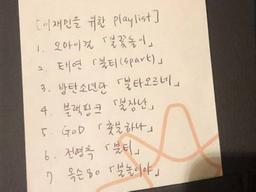 [이재민을 위한 playlist]
1. 오마이걸 「불꽃놀이」
2. 태연 「불티(spark)」
3. 방탄소년단 「불타오르네」
4. 블랙핑크 「불장난」
5. GOD 「촛불하나」
6. 전영록 「불티」
7. 옥슨80 「불놀이야」